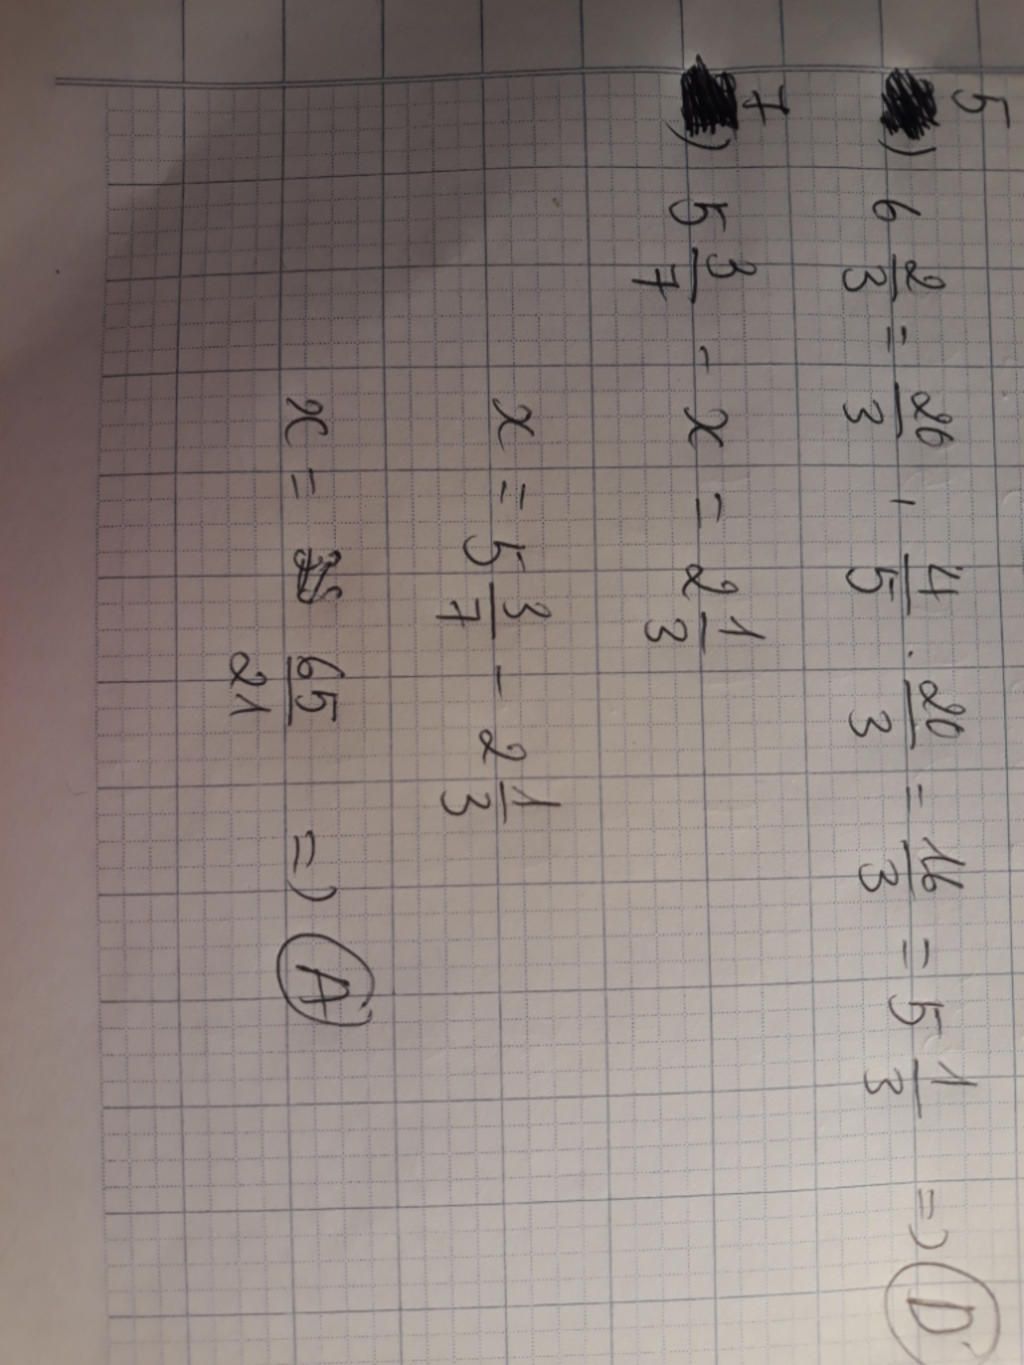 5) 6 2/3 = 20/3 , 4/5 . 20/3 = 16/3 = 5 1/3 => D
7) 5 3/7 - x = 2 1/3
x = 5 3/7 - 2 1/3
x = 65/21 => A